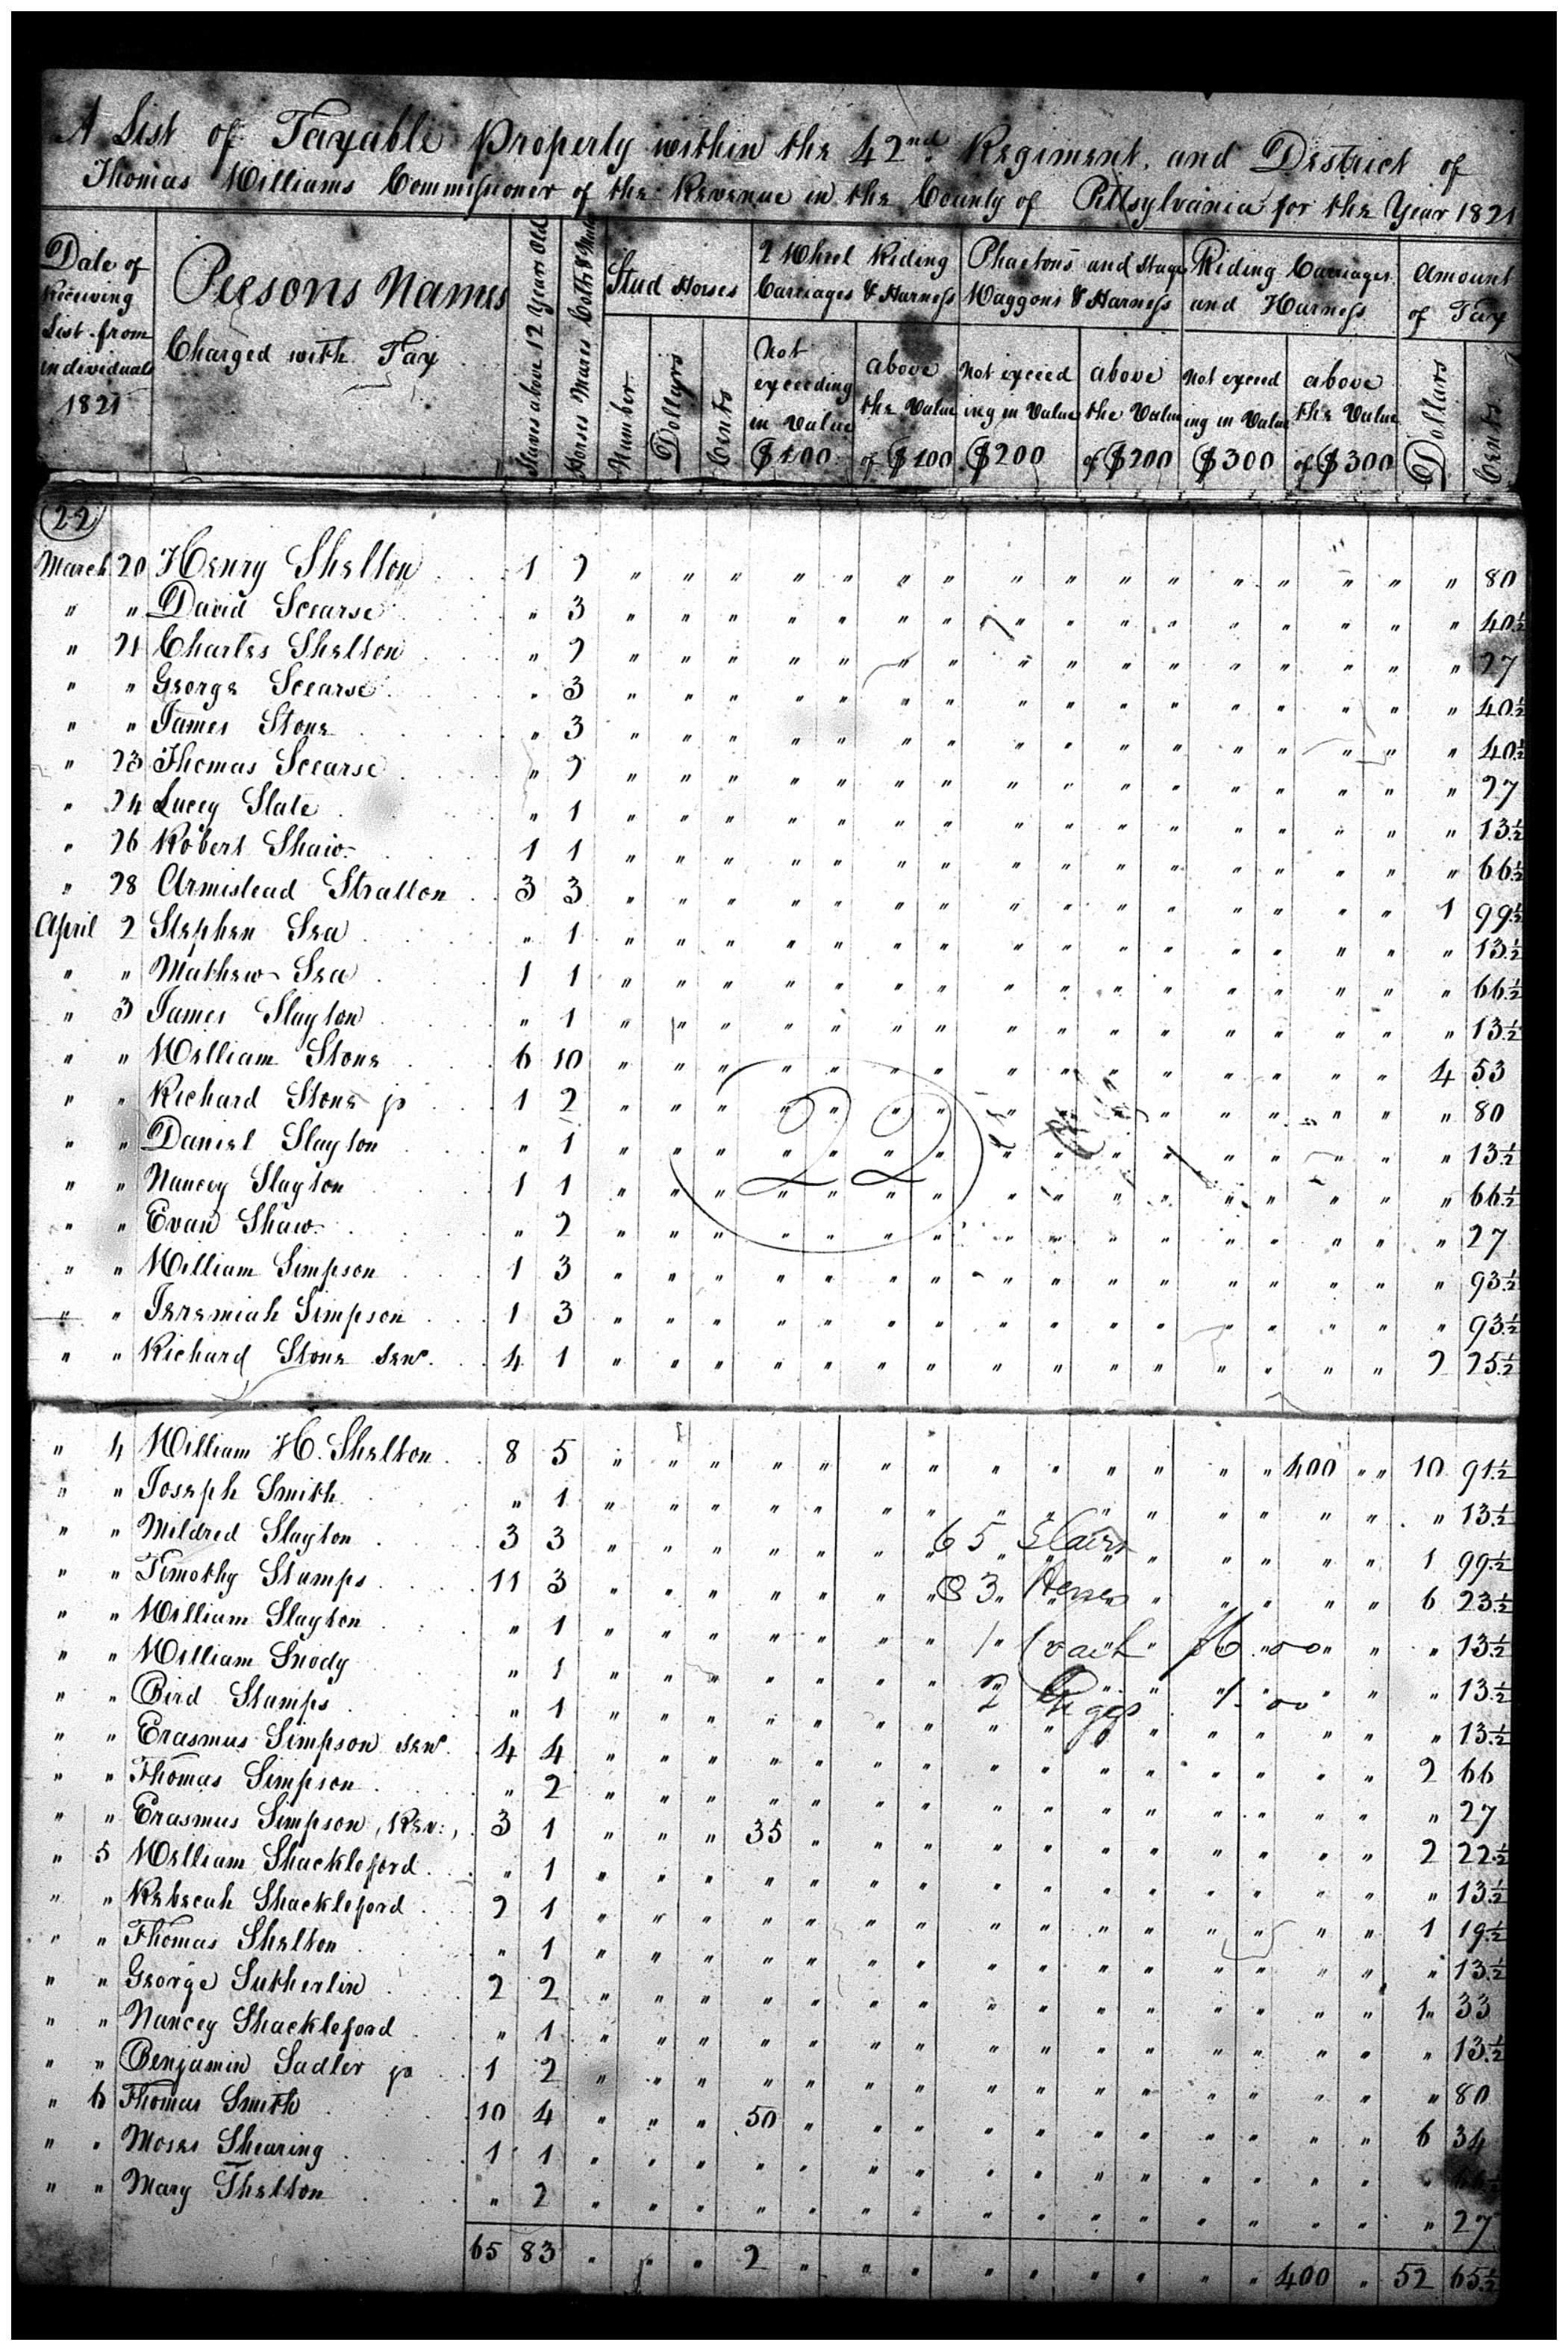 A List of Taxable Property within the 42nd Regiment, and District of
Thomas Williams Commissioner of the Revenue in the County of Pittsylvania for the Year 1821
Date of Receiving List from individuals 1821
Persons Names Charged with Tax
Slaves above 12 Years Old
Horses Mares Colts & Mules
Stud Horses
Number Dollars Cents
2 Wheel Riding Carriages & Harness
Not exceeding in Value $100
above the Value of $100
Phaetons and Stage Waggons & Harness
Not exceeding in Value $200
above the Value of $200
Riding Carriages and Harness
Not exceeding in Value $300
above the Value of $300
Amount of Tax
Dollars Cents
22
March 20 Henry Shelton 1 2 " 80
" " David Scearse " 3 " 40½
" 21 Charles Shelton " 2 " 27
" " George Scearse " 3 " 40½
" " James Stone " 3 " 40½
" 23 Thomas Scearse " 2 " 27
" 24 Lucey Slate " 1 " 13½
" 26 Robert Shaw 1 1 " 66½
" 28 Armistead Stratton 3 3 1 99½
April 2 Stephen Sea " 1 " 13½
" " Mathew Sea 1 1 " 66½
" 3 James Slayton " 1 " 13½
" " William Stone 6 10 4 53
" " Richard Stone jr 1 2 " 80
" " Daniel Slayton " 1 " 13½
" " Nancey Slayton 1 1 " 66½
" " Evan Shaw " 2 " 27
" " William Simpson 1 3 " 93½
" " Jeremiah Simpson 1 3 " 93½
" " Richard Stone senr. 4 1 2 25½
22
" 4 William H. Shelton 8 5 400 10 91½
" " Joseph Smith " 1 " 13½
" " Mildred Slayton 3 3 1 99½
" " Timothy Stamps 11 3 6 23½
" " William Slayton " 1 " 13½
" " William Snody " 1 " 13½
" " Bird Stamps " 1 " 13½
" " Erasmus Simpson senr. 4 4 2 66
" " Thomas Simpson " 2 " 27
" " Erasmus Simpson, Rev:, 3 1 35 2 22½
" 5 William Shackleford " 1 " 13½
" " Rebecah Shackleford 2 1 1 19½
" " Thomas Shelton " 1 " 13½
" " George Sutherlin 2 2 1 33
" " Nancey Shackleford " 1 " 13½
" " Benjamin Sadler jr 1 2 " 80
" 6 Thomas Smith 10 4 50 6 34
" " Moses Shearing 1 1 " 66½
" " Mary Shelton " 2 " 27
65 83 2 400 52 65½
65
83 Horses
1 Coach
2 Giggs